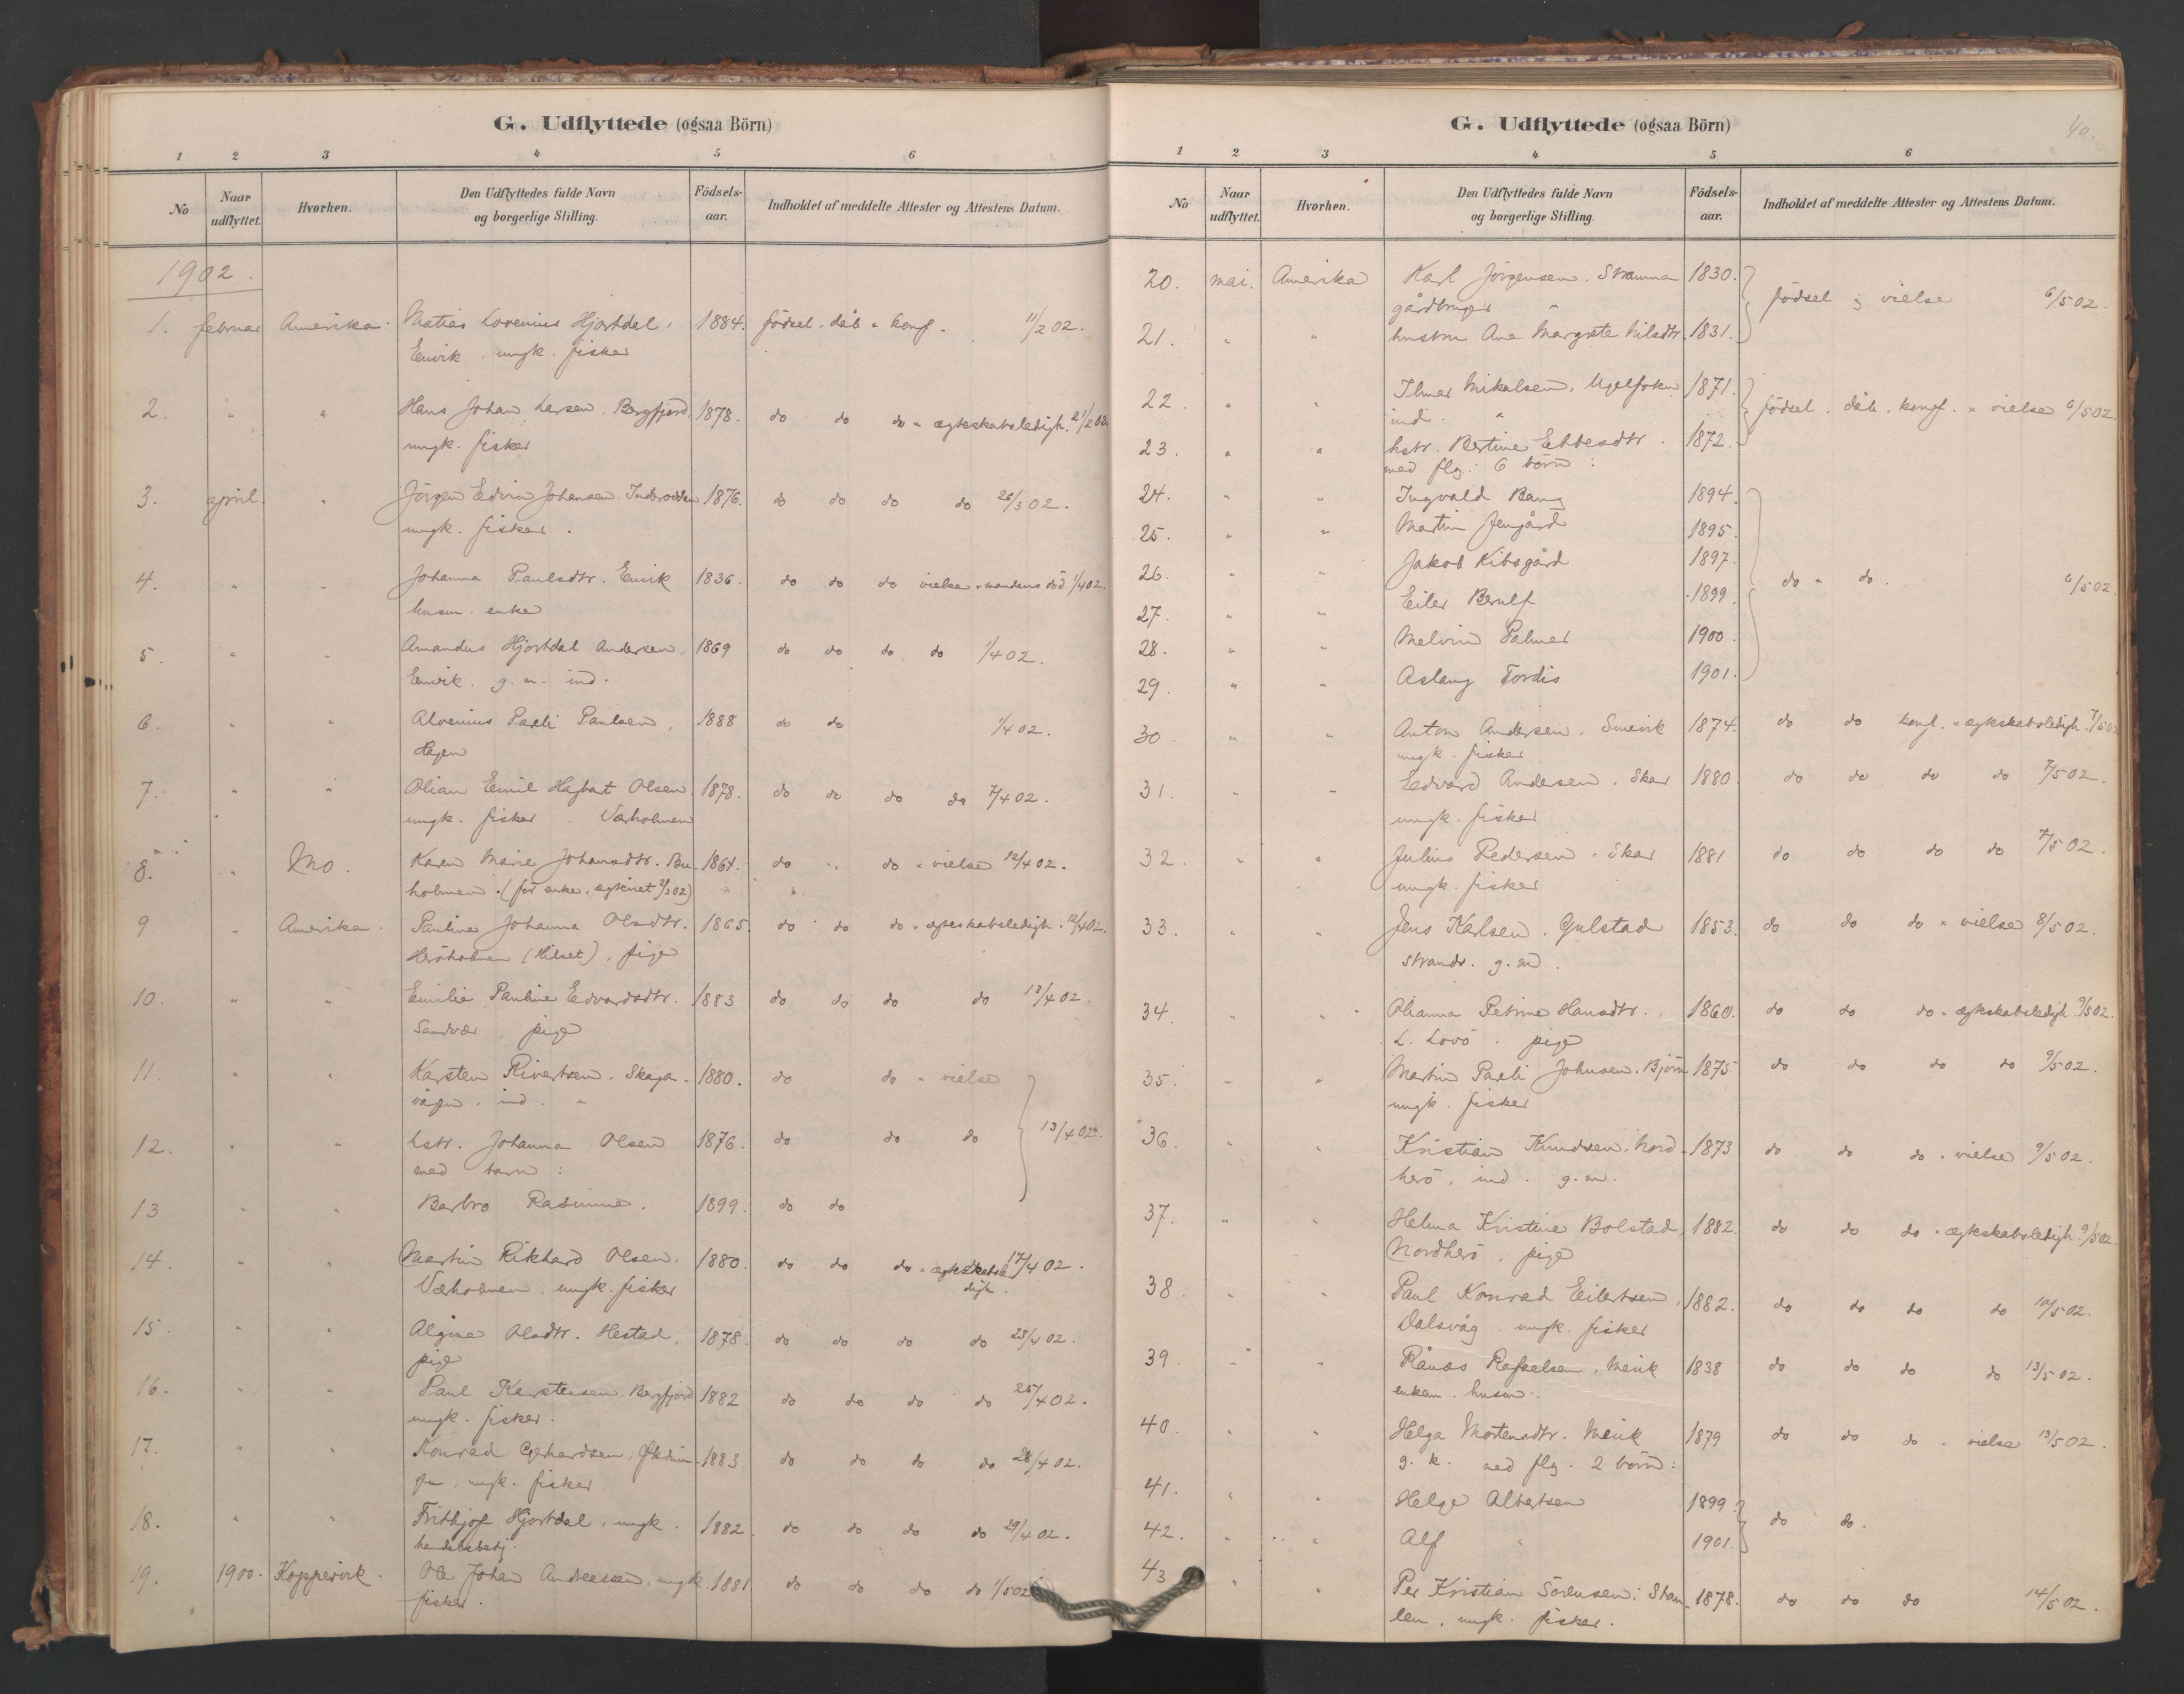 G. Udflyttede (ogsaa Börn)
1 2 3 4 5 6
No
Naar udflyttet.
Hvorhen.
Den Udflyttedes fulde Navn og borgerlige Stilling.
Födsels-aar.
Indholdet af meddelte Attester og Attestens Datum.
1902.
1. februar Amerika. Matias Lovenius Hjortdal, 1884. födsel, dåb " konf. 11/2 02.
Emvik. ungk. fisker
2. " " Hans Johan Larsen, Bergfjord, 1878. do do do " ægteskabsledigh. 21/2 02.
ungk. fisker
3. april. " Jörgen Edvin Johansen 1876. do do do do 26/3 02.
ungk. fisker.
4. " " Johanna Paulsdtr. Emvik 1836. do do do vielse " mandens död 1/4 02.
husm. enke
5. " " Amandus Hjortdal Andersen, 1869 do do do do 1/4 02.
Emvik. g. m. ind.
6. " " Alvenius Parli Paulsen, 1888 do do 1/4 02.
Hagen
7. " " Olian Emil Hagbart Olsen, 1878. do do do do 7/4 02.
ungk. fisker Værholmen
8. " Mo. Karen Marie Johansdtr. Bu- 1864. do " do " vielse 12/4 02.
holmen. (för enke, egtviet 2/3 02)
9 " Amerika. Pauline Johanna Olsdtr. 1865. do do do " ægteskabsledigh. 12/4 02.
Heröholmen (Hilset), pige
10. " " Emilie Pauline Edvardsdtr. 1883 do do do do 12/4 02.
Sandvær, pige
11. " " Karsten Rivertsen. Skaga- 1880. do do " vielse
vågen. ind. "
12. " " hstr. Johanna Olsen 1876. do do do 13/4 02.
med barn:
13 " " Barbro Rasmine. 1899. do do
14. " " Martin Rikhard Olsen. 1880. do do do " ægteskabsle- 17/4 02.
Værholmen. ungk. fisker digh.
15. " " Algine Olsdtr. Hestad, 1878. do do do do 23/4 02.
pige
16. " " Paul Karstensen. Bergfjord 1882 do do do do 25/4 02.
ungk. fisker.
17. " " Konrad Gerhardsen, 1883. do do do do 28/4 02.
ungk. fisker
18. " " Frithjof Hjortdal, ungk. 1882. do do do do 29/4 02.
handelsbetj.
19. 1900. Koppervik. Ole Johan Andreassen, ungk. 1881 do do do do 1/5 02
fisker.
G. Udflyttede (ogsaa Börn)
40.
1 2 3 4 5 6
No
Naar udflyttet.
Hvorhen.
Den Udflyttedes fulde Navn og borgerlige Stilling.
Födsels-aar.
Indholdet af meddelte Attester og Attestens Datum.
20. mai. Amerika Karl Jörgensen. Strauma 1830. födsel " vielse 6/5 02.
gårdbruger "
21. " " hustru Ane Margrete Nilsdtr. 1831.
22. " " Ilmer Mikalsen. 1871. födsel, dåb, konf. " vielse 6/5 02.
ind. "
23. " " hstr. Bertine Ebbesdtr. 1872.
med flg. 6 börn:
24. " " Ingvald Bang 1894.
25. " " Martin Jengård 1895.
26. " " Jakob Kibsgård 1897.
do " do. 6/5 02.
27. " " Eiler Bernlf 1899.
28. " " Melvin Palmer 1900.
29. " " Aslaug Tordis 1901.
30. " " Anton Andersen. Smevik 1874. do do konf. " ægteskabsledigh. 7/5 02
ungk. fisker
31. " " Edvard Andersen. Skar 1880. do do do do 7/5 02.
ungk. fisker
32. " " Julius Pedersen. Skar 1881 do do do do 7/5 02.
ungk. fisker
33. " " Jens Karlsen. Gulstad 1853. do do do " vielse 8/5 02.
strands. g. m.
34. " " Olianna Petrine Hansdtr. 1860. do do do " ægteskabsledigh. 9/5 02.
L. Lovö. pige
35. " " Martin Parli Johnsen. Björn 1875 do do do do 9/5 02.
ungk. fisker
36. " " Kristian Knudsen. Nord- 1873 do do do " vielse 9/5 02.
herö, ind. g. m.
37. " " Helma Kristine Bolstad, 1882. do do do " ægteskabsledigh. 9/5 02.
Nordherö, pige
38. " " Paul Konrad Eilertsen, 1882. do do do do 10/5 02.
Dalsvåg. ungk. fisker
39. " " Rånæs Rafaelsen, Mevik 1838 do do do do 13/5 02.
enkem. husm.
40. " " Helga Mortensdtr. Mevik 1879 do do do " vielse 13/5 02.
g. k. med flg. 2 börn:
41. " " Helge Albertsen 1899.
do do.
42. " " Alf " 1901.
43 " " Per Kristian Sörensen. Stau- 1878. do do do 14/5 02.
len, ungk. fisker.